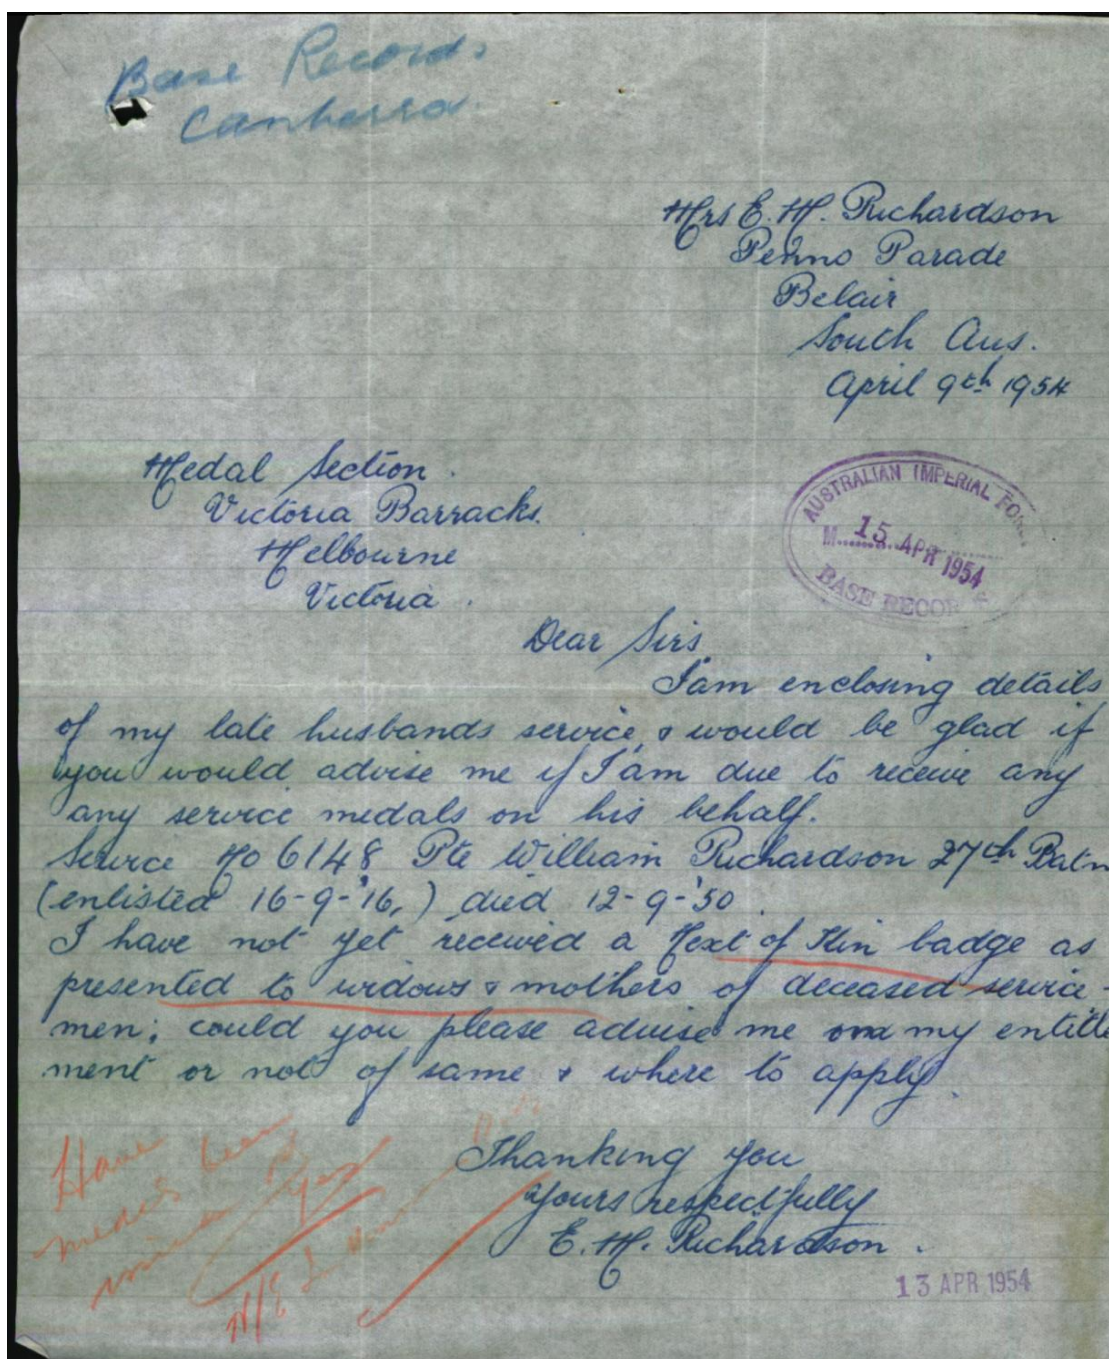 Base Records
Canberra.
Mrs E. M. Richardson
Penno Parade
Belair
South Aus.
April 9th 1954
Medal Section.
Victoria Barracks.
Melbourne
Victoria.
AUSTRALIAN IMPERIAL
M 15 APR 1954
BASE RECOR
Dear Sirs.
I am enclosing details
of my late husbands service, & would be glad if
you would advise me if I am due to receive any
any service medals on his behalf.
Service No 6148 Pte William Richardson 27th Batn
(enlisted 16-9-'16,) died 12-9-'50.
I have not yet received a Next of Kin badge as
presented to widows & mothers of deceased service-
men; could you please advise me my entitle
ment or not of same & where to apply.
Thanking you
Yours respectfully
E. M. Richardson.
Have
medals been
Yes
13 APR 1954